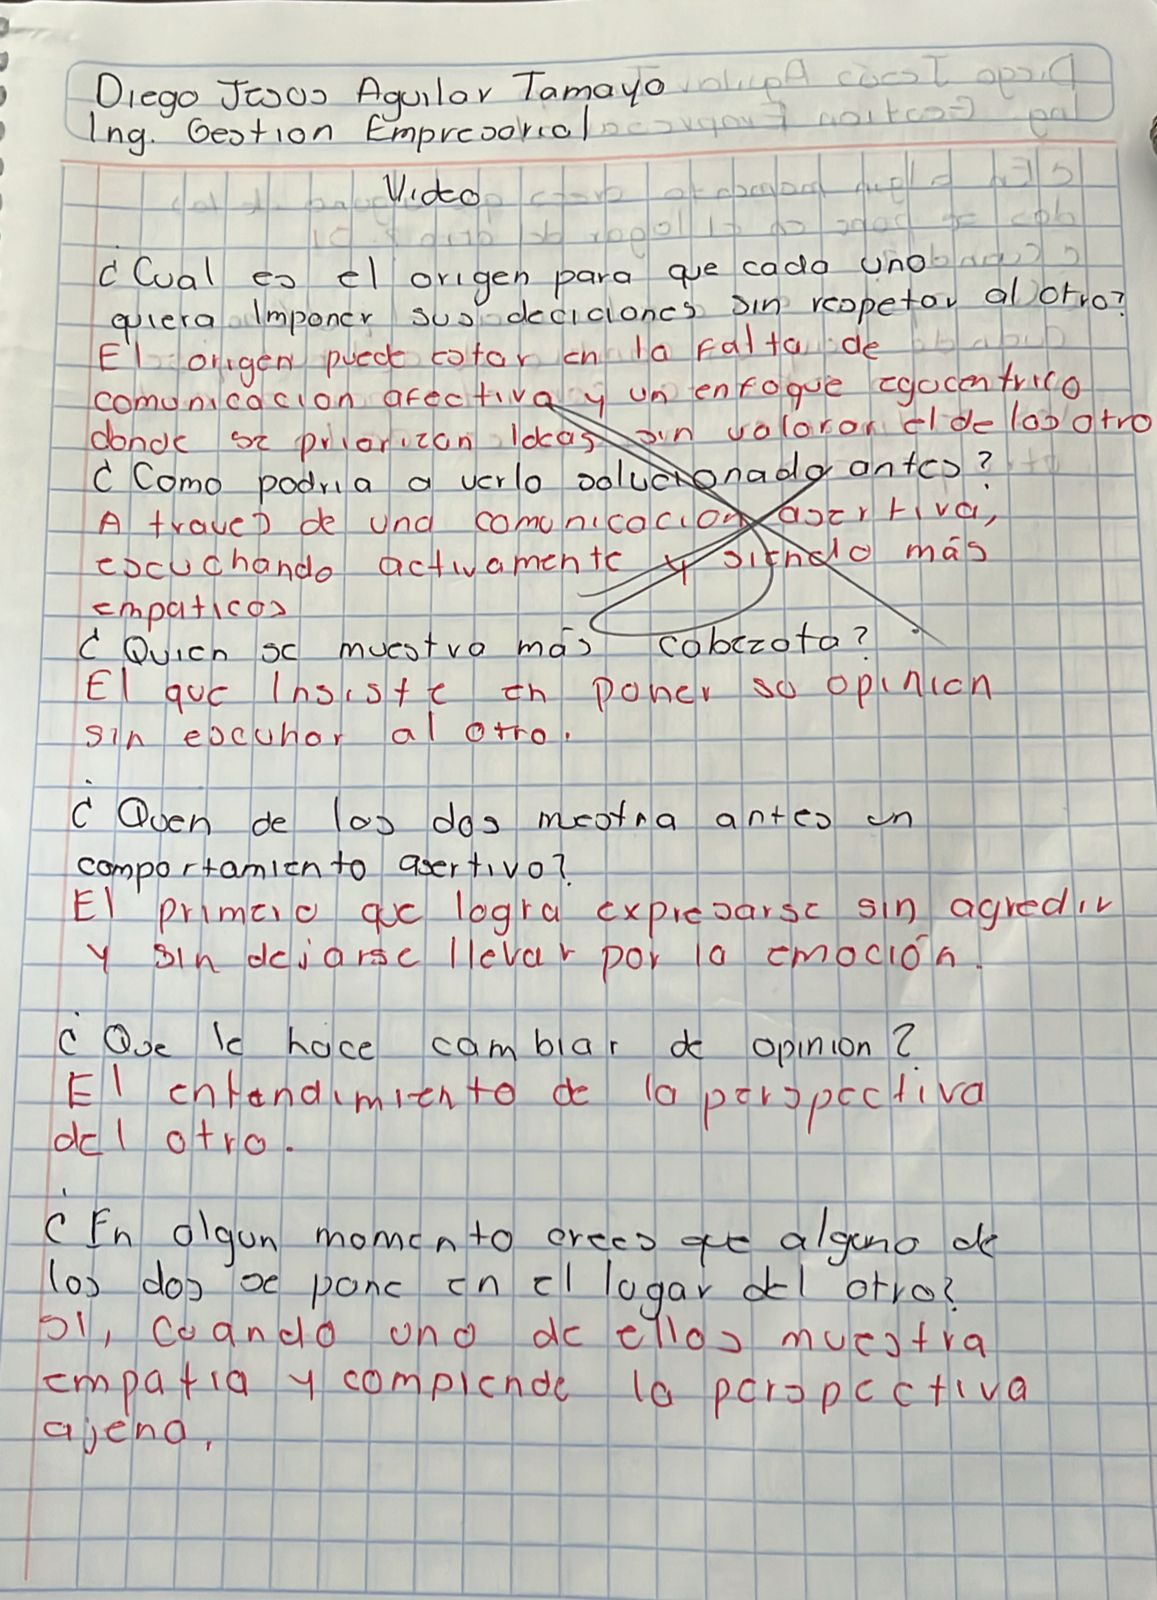 Diego Jesus Aguilar Tamayo
Ing. Gestion Empresarial
Video
¿Cual es el origen para que cada uno
quiera Imponer sus deciciones sin respetar al otro?
El origen puede estar en la falta de
comunicacion afectiva y un enfoque egocentrico
donde se priorizan Ideas sin valorar el de los otro
¿Como podria a verlo solucionado antes?
A traves de una comunicacion asertiva,
escuchando activamente y siendo más
empaticos
¿Quien se muestra más cabezota?
El que Insiste en poner su opinion
sin escuhar al otro.
¿Quen de los dos mestra antes un
comportamiento asertivo?
El primero que logra expresarse sin agredir
y sin dejarse llevar por la emoción.
¿Que le hace cambiar de opinion?
El entendimiento de la perspectiva
del otro.
¿En algun momento crees que alguno de
los dos se pone en el lugar del otro?
Si, cuando uno de ellos muestra
empatia y comprende la perspectiva
ajena.